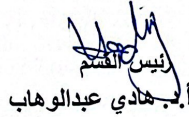 رئيس القسم
أ.ب هادي عبدالوهاب